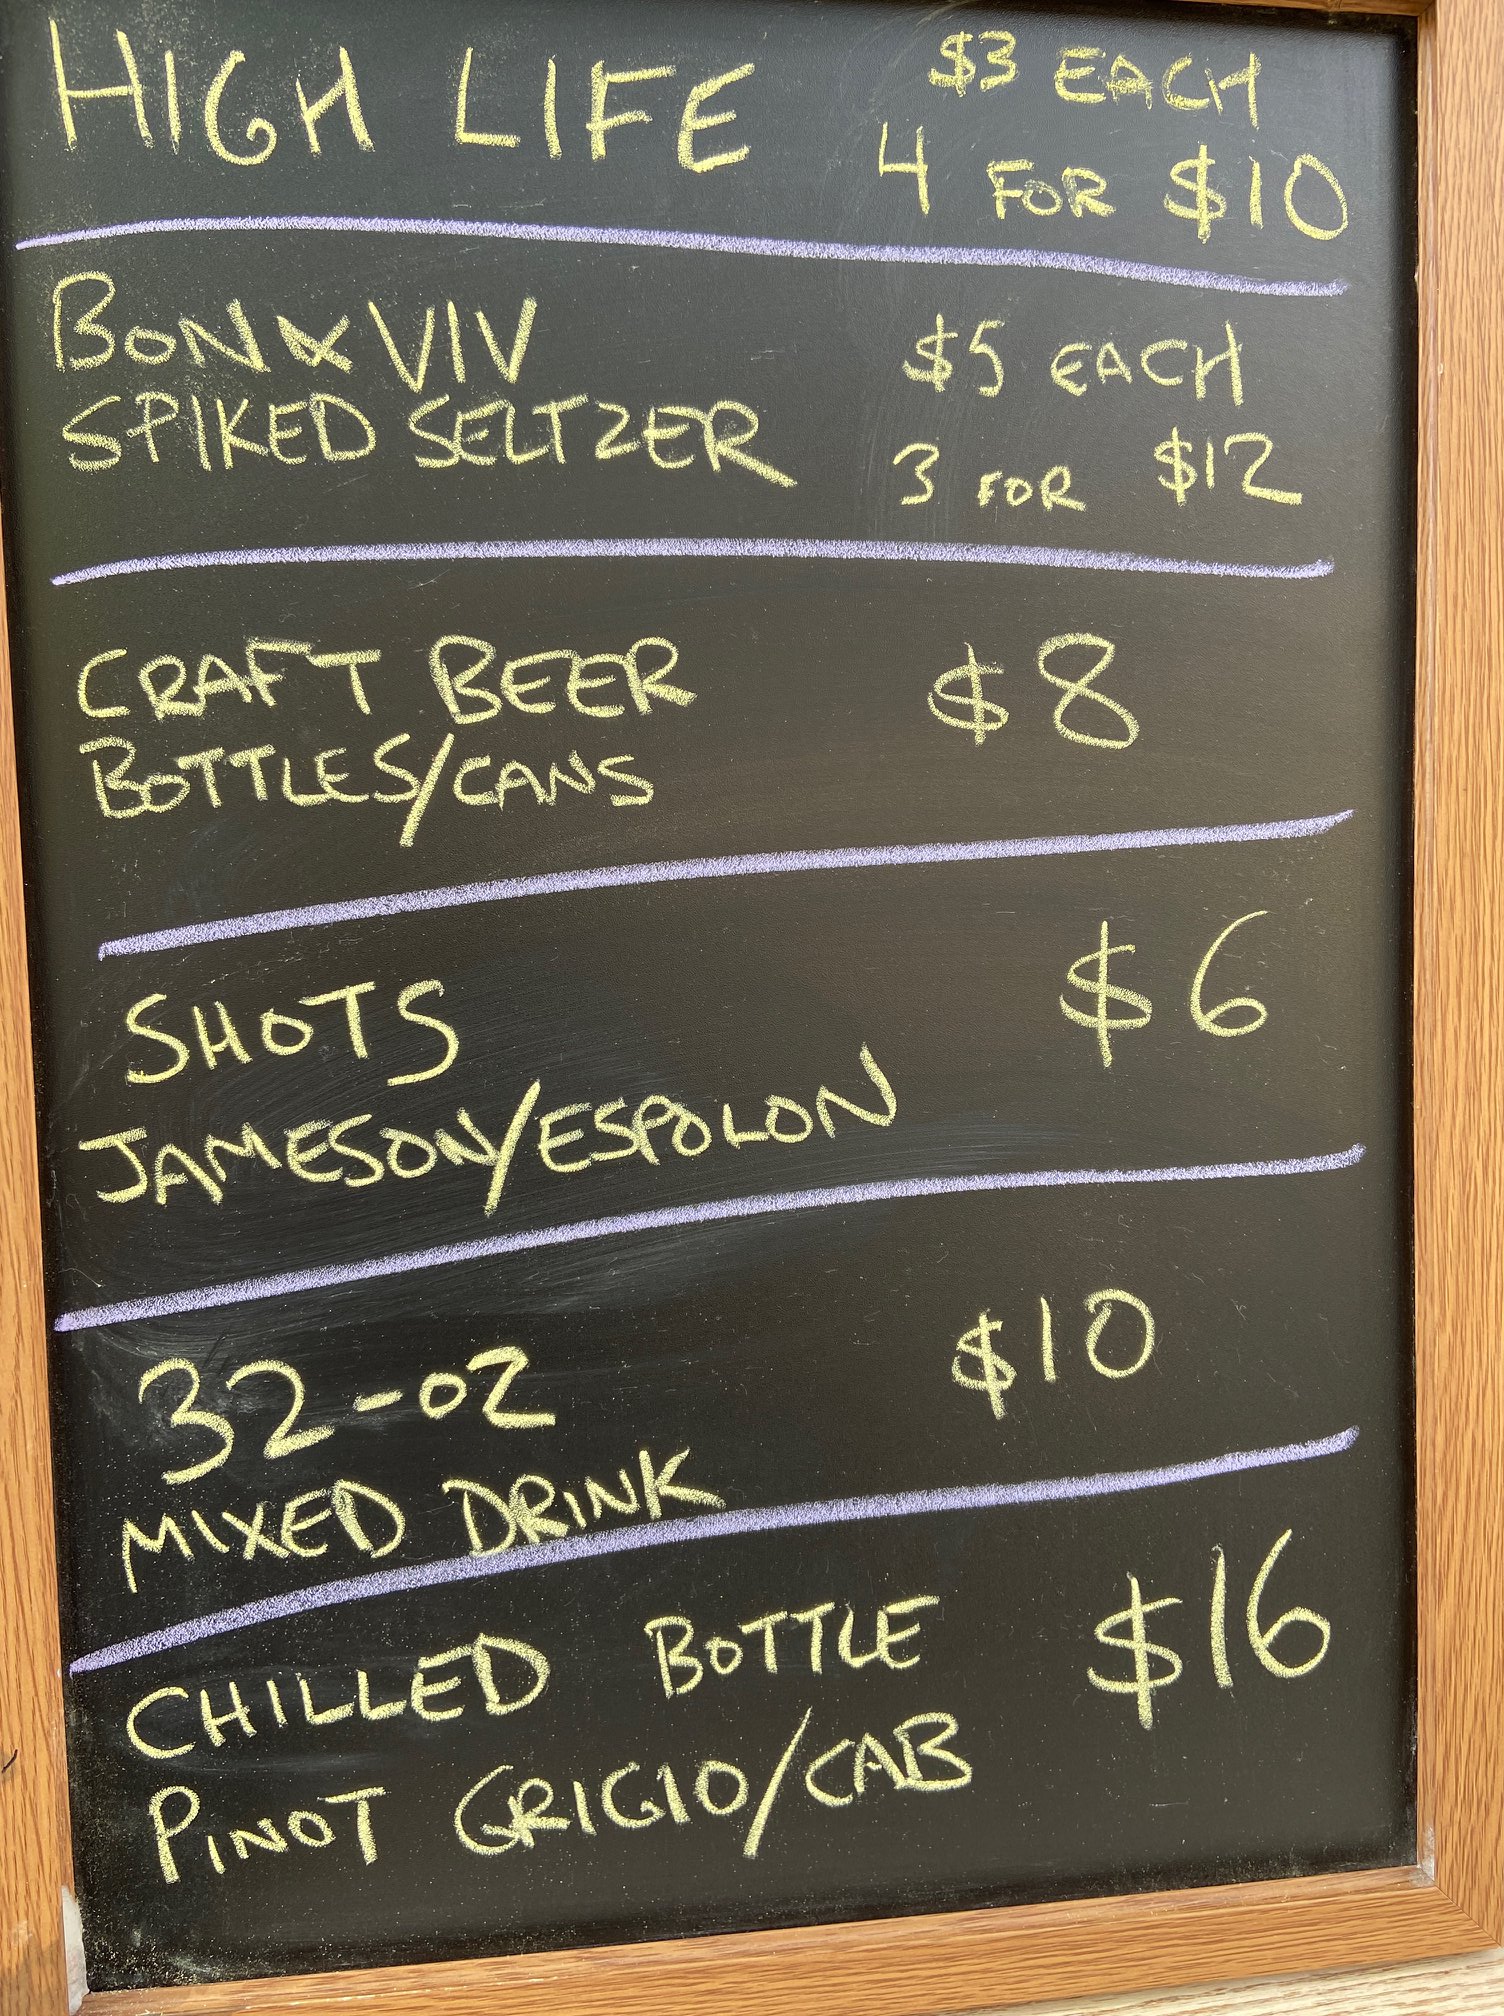 HIGH LIFE $3 EACH
4 FOR $10
BON & VIV $5 EACH
SPIKED SELTZER 3 FOR $12
CRAFT BEER $8
BOTTLES/CANS
SHOTS $6
JAMESON/ESPOLON
32-OZ $10
MIXED DRINK
CHILLED BOTTLE $16
PINOT GRIGIO/CAB